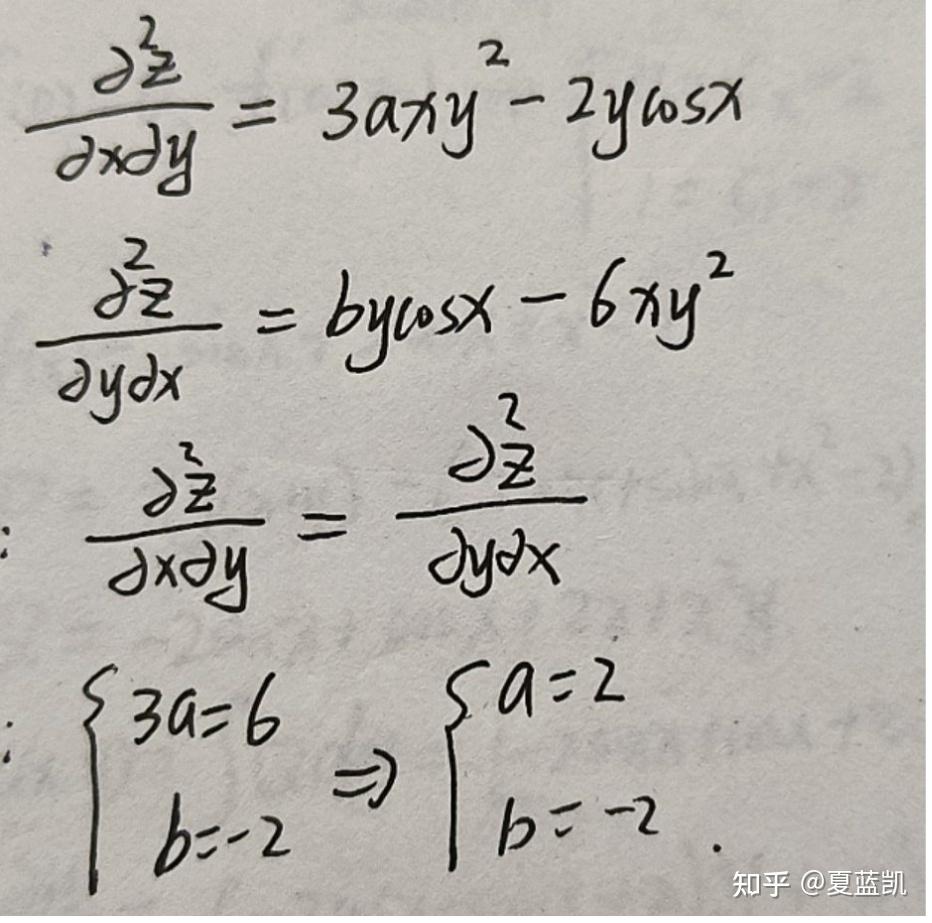 ∂²z/∂x∂y = 3axy² - 2ycosx
∂²z/∂y∂x = bycosx - 6xy²
: ∂²z/∂x∂y = ∂²z/∂y∂x
: { 3a=6 ⇒ { a=2
b=-2 b=-2 .
知乎 @夏蓝凯